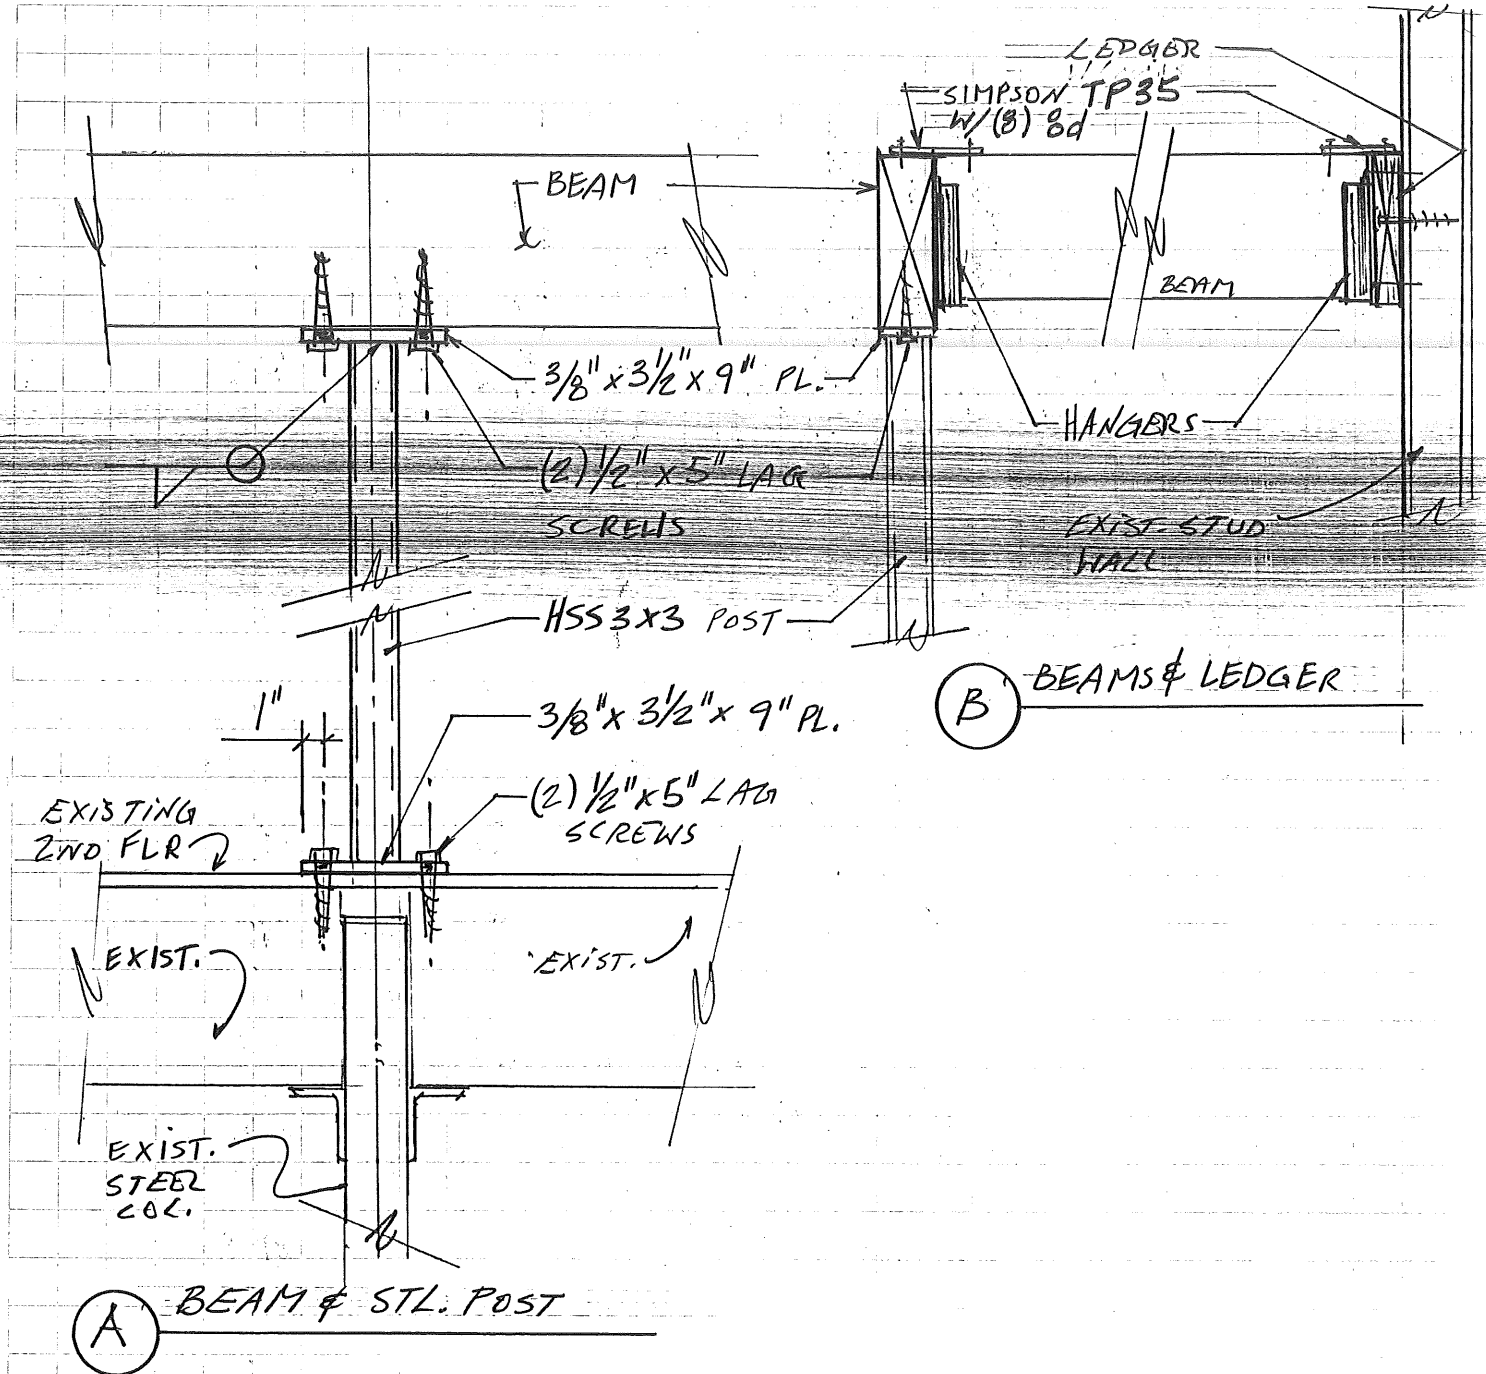 LEDGER
SIMPSON TP35
W/(8) 8d
BEAM
BEAM
3/8" x 3 1/2" x 9" PL.
HANGERS
(2) 1/2" x 5" LAG
SCREWS
EXIST. STUD
WALL
HSS 3x3 POST
B BEAMS & LEDGER
1"
3/8" x 3 1/2" x 9" PL.
(2) 1/2" x 5" LAG
SCREWS
EXISTING
2ND FLR
EXIST.
EXIST.
EXIST.
STEEL
COL.
A BEAM & STL. POST